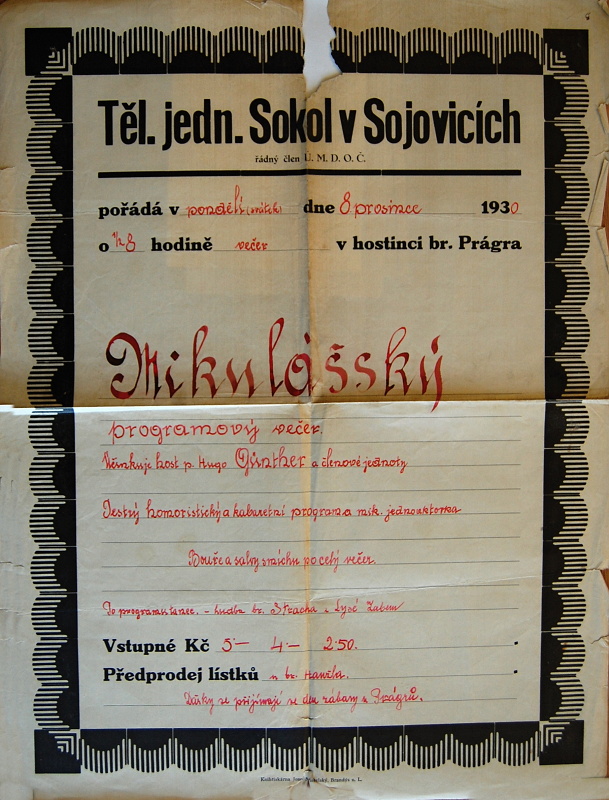 Těl. jedn. Sokol v Sojovicích
řádný člen Ú. M. D. O. Č.
pořádá v pondělí (svátek) dne 8 prosince 1930
o ½8 hodině večer v hostinci br. Prágra
Mikulášský
programový večer.
Účinkuje host p. Hugo Günther a členové jednoty
Pestrý humoristický a kabaretní program a mik. jednoaktovka
Bouře a salvy smíchu po celý večer.
Po programu tanec. - hudba br. Stracha z Lysé
Vstupné Kč 5·- 4·- 2·50.
Předprodej lístků u br. Havla.
Dárky se přijímají ve dne zábavy u Prágrů.
Knihtiskárna Brandýs n. L.